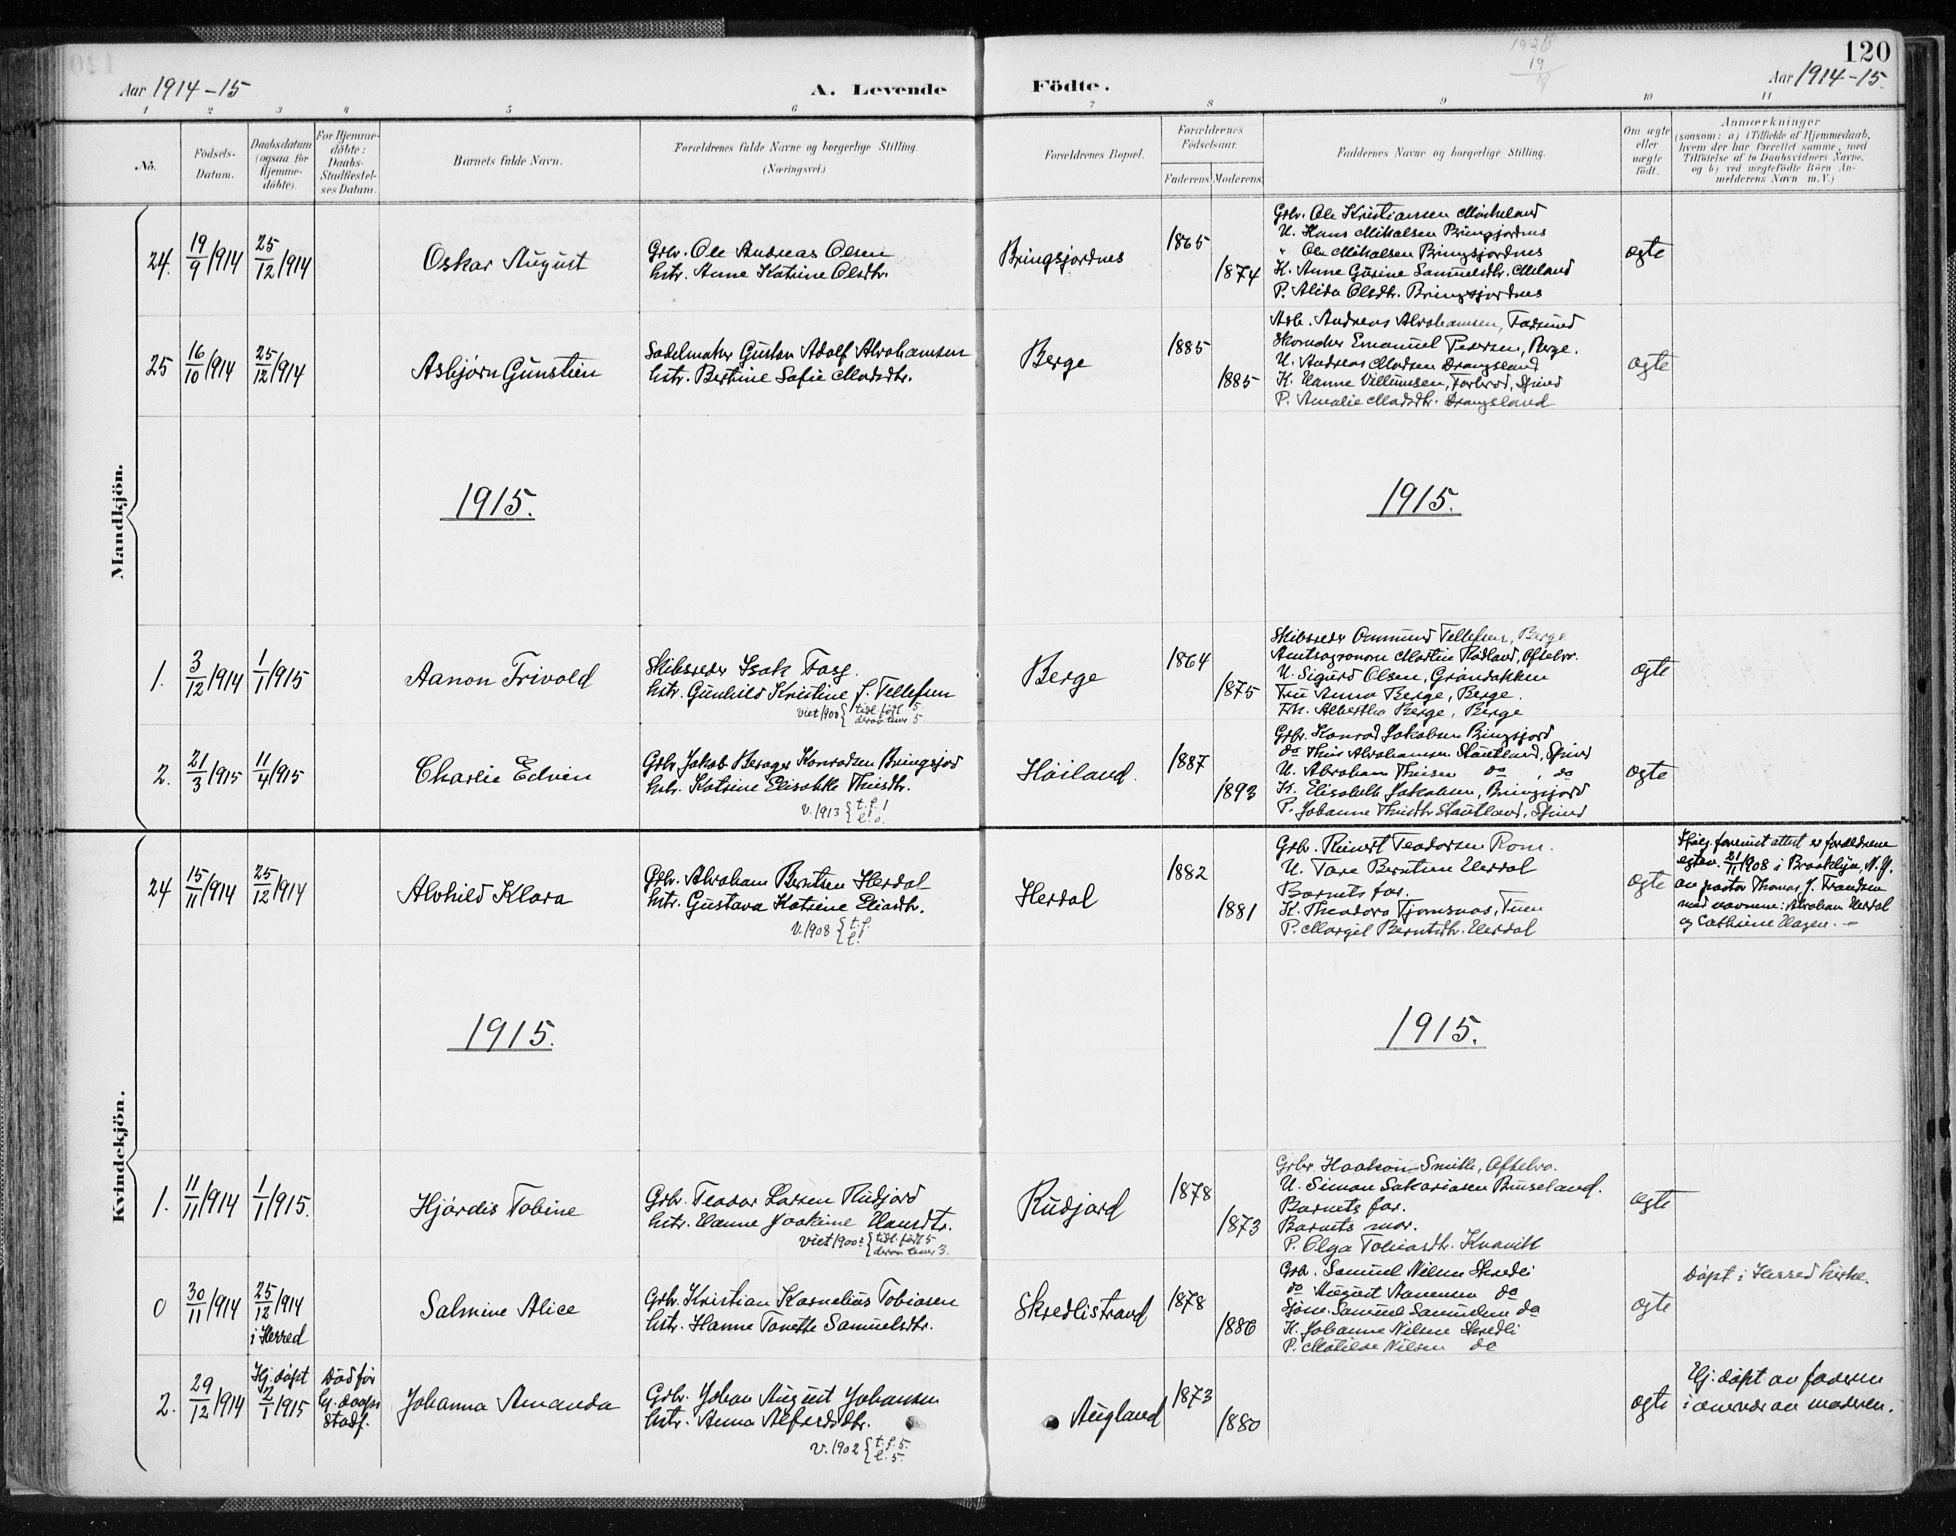 120
Aar 1914-15
A. Levende
Födte.
Aar 1914-15.
1 2 3 4 5 6 7 8 9 10 11
No.
Födsels-
Datum.
Daabsdatum
(ogsaa for
Hjemme-
döbte).
For Hjemme-
döbte:
Daabs-
Stadfæstel-
ses Datum.
Barnets fulde Navn.
Forældrenes fulde Navne og borgerlige Stilling.
(Næringsvei.)
Forældrenes Bopæl.
Forældrenes
Födselsaar.
Faderens. Moderens.
Faddernes Navne og borgerlige Stilling.
Om ægte
eller
uægte
födt.
Anmærkninger
(saasom: a) i Tilfælde af Hjemmedaab,
hvem der har forrettet samme, med
Tilföielse af to Daabsvidners Navne,
og b) ved uægtefödte Börn An-
melderens Navn m. V.)
Mandkjön.
24. 19/9/914 25/12/914 Oskar August
Gbr. Ole Andreas Olsen
hstr. Anne Katrine Olsdtr.
Bringsjordnes 1865 1874
Gbr. Ole Kristiansen
U. Hans Mikalsen Bringsjordnes
" Ole Mikalsen Bringsjordnes
K. Anne Gurine Samuelsdtr.
P. Alida Olsdtr. Bringsjordnes
egte
25 16/10/914 25/12/914 Asbjørn Gunstein
Sadelmaker Gustav Adolf Abrahamsen
hstr. Bertine Sofie Madsdtr.
Berge 1885 1885
Arb. Andreas Abrahamsen, Farsund
Skomaker Emanuel Pedersen, Berge.
U. Andreas Madsen Drangsland
K. Hanne Villumsen, Spind
P. Amalie Madsdtr. Drangsland
egte
1915.
1915.
1. 3/12/914 1/1/915 Aanon Trivold
Skibsreder Isak
hstr. Gunhild Kristine f. Tellefsen
viet 1900 { tidl. født 5
derav lever 5.
Berge 1864 1875
Skibsreder Ommund Tellefsen, Berge
Amtsagronom Martin Rødland,
U. Sigurd Olsen,
Fru Anna Berge, Berge.
Frk. Albertha Berge, Berge
egte
2. 21/3/915 11/4/915 Charlie Edvin
Gbr. Jakob Berager Konradsen Bringsjord
hstr. Katrine Elisabeth Thiesdtr.
v. 1913 { t. f. 1
l. 0.
Høiland. 1887 1893
Gbr. Konrad Jakobsen Bringsjord
do Thies Abrahamsen Stautland, Spind
U. Abraham Thiesen do, do
K. Elisabeth Jakobsen, Bringsjord
P. Johanne Thiesdtr Stautland, Spind
egte
Kvindekjön.
24 15/11/914 25/12/914 Alvhild Klara
Gbr. Abraham Berntsen Herdal
hstr. Gustava Katrine Eliasdtr.
v. 1908 { t. f.
l.
Herdal 1882 1881
Gbr. Reinert Teodorsen Rom.
U. Tore Berntsen Herdal
Barnets far.
K. Theodora Tjomsnas,
P. Margit Berntsdtr. Herdal
egte
Ifølg. foreviist attest er forældrene
egtev. 21/11 1908 i Brooklyn, N.Y.
av pastor Thomas J. Frandsen
med navnene: Abraham Herdal
og Cathrine Hagen. -
1915.
1915.
1. 11/11/914 1/1/915. Hjørdis Tobine
Gbr. Teodor Larsen Rudjord
hstr. Hanne Joakime Hansdtr.
viet 1900: { tidl. født 5
derav lever 3.
Rudjord 1878 1873
Gbr. Haakon Smith,
U. Simon Sakariasen Buseland.
Barnets far.
Barnets mor.
P. Olga Tobiasdtr. Kvavik
egte
0 30/11/914 25/12/914
i Herred
Salmine Alice
Gbr. Kristian Kornelius Tobiasen
hstr. Hanne Tonette Samuelsdtr.
Skredlistrand 1878 1886
Gbr. Samuel Nilsen Skredli
do August Aanensen do
Sjøm. Samuel Samuelsen do
K. Johanne Nilsen Skredli
P. Matilde Nilsen do
egte
Døpt i Herred kirke.
2. 29/12/914
Hj. døpt
2/1/915
Død før
hj. daaps
stadf.
Johanna Amanda
Gbr. Johan August Johansen
hstr. Anna Alfredsdtr.
v. 1902 { t. f. 5.
l. 5.
Augland 1873 1880
egte
Hj. døpt av faderen
i nærvær av moderen.